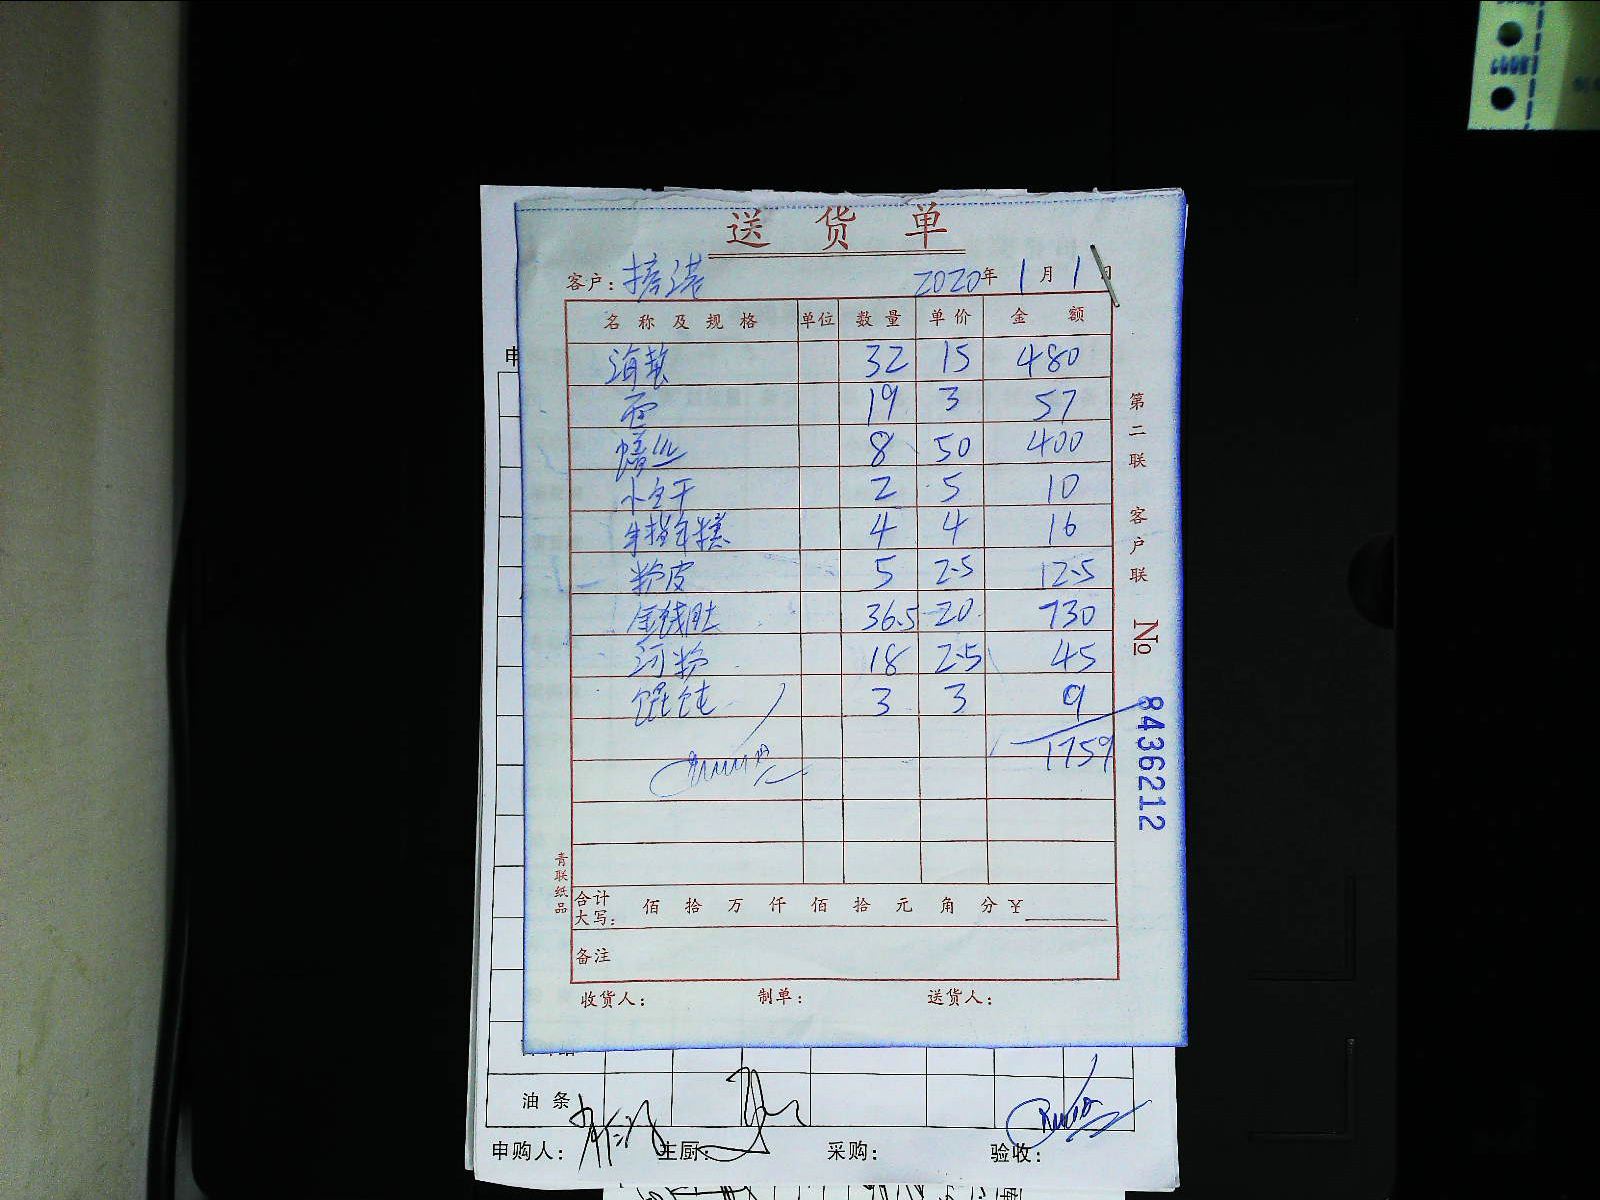 送货单
客户: 2020年1月1日
名称及规格 单位 数量 单价 金额
海蜇 32 15 480
面 19 3 57
鳝丝 8 50 400
小包干 2 5 10
年糕 4 4 16
粉皮 5 2.5 12.5
金钱肚 36.5 20 730
河粉 18 2.5 45
馄饨 3 3 9
1759
合计大写: 佰 拾 万 仟 佰 拾 元 角 分 ¥
备注
收货人: 制单: 送货人:
第二联 客户联
No 8436212
青联纸品
油条
申购人: 主厨: 采购: 验收: